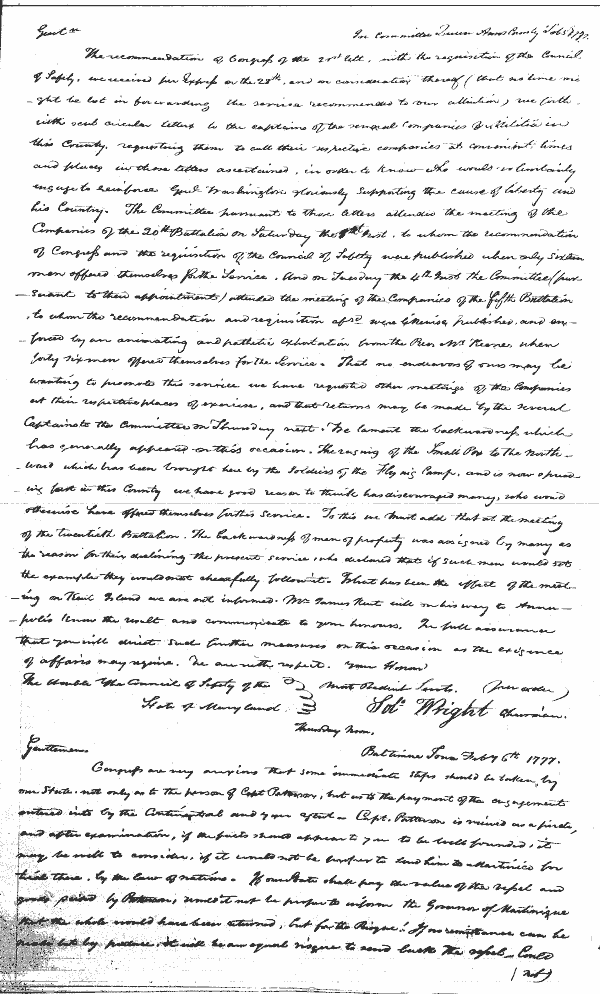 Gent.n In Committee Queen Anns County Feb.
The recommendation of Congress of the ult, with the requisition of the Council
of Safety, we received per Express on the 28th, and on consideration thereof (that no time mi
-ght be lost in forwarding the service recommended to our attention) we forth
with sent circular letters to the captains of the several Companies of Militia in
this County, requesting them to call their respective companies at convenient times
and places in those letters ascertained, in order to know who would voluntarily
engage to reinforce Genl Washington gloriously supporting the cause of liberty and
his Country. The Committee pursuant to those letters attended the meeting of the
Companies of the 20th Battalion on Saturday the Inst. to whom the recommendation
of Congress and the requisition of the Council of Safety were published when only sixteen
men offered themselves for the Service. And on Tuesday the 4th Inst the Committee (pur
-suant to their appointment) attended the meeting of the Companies of the fifth Battalion
, to whom the recommendation and requisition afsd were likewise published, and en-
-forced by an animating and pathetic exhortation from the Revd Mr Keene, when
forty six men offered themselves for the Service. That no endeavors of ours may be
wanting to promote this service we have requested other meetings of the Companies
at their respective places of exercise, and that returns may be made by the several
Captains to the Committee on Thursday next. We lament the backwardness, which
has generally appeared on this occasion. The raging of the Small Pox to the North-
ward which has been brought here by the soldiers of the Flying Camp, and is now spread-
ing fast in this County we have good reason to think has discouraged many, who would
otherwise have offered themselves for this Service. To this we must add that at the meeting
of the twentieth Battalion. The backwardness of men of property was assigned by many as
the reason for their declining the present service, who declared that if such men would sett
the example they would most chearfully follow it. What has been the effect of the meet-
-ing on Kent Island we are not informed. Mr James Kent will on his way to Anna-
-polis know the result and communicate to your honours. In full assurance
that you will direct such further measures on this occasion as the exigence
of affairs may require. We are with respect. Your Honors
The Honble The Council of Safety of the Most Obedient Servts. (per order)
State of Maryland Sol. Wright Chairman.
Thursday Noon.
Gentlemen Baltimore Town Feby 6th 1777.
Congress are very anxious that some immediate steps should be taken, by
our State. not only as to the person of Capt Patterson, but as to the payment of the engagements
entered into by the Continental and your Capt. Patterson is viewed as a pirate,
and after examination, if the facts should appear to you to be well founded, it
may be well to consider, if it would not be proper to send him to Martinico for
trial there, by the law of nations. If our State shall pay the value of the vessel and
goods seized by Patterson, would it not be proper to inform the Governor of Martinique
that the whole would have been returned, but for the Risque. If no remittance can be
made but by produce, it will be an equal risque to send back the vessel. Could
(not)